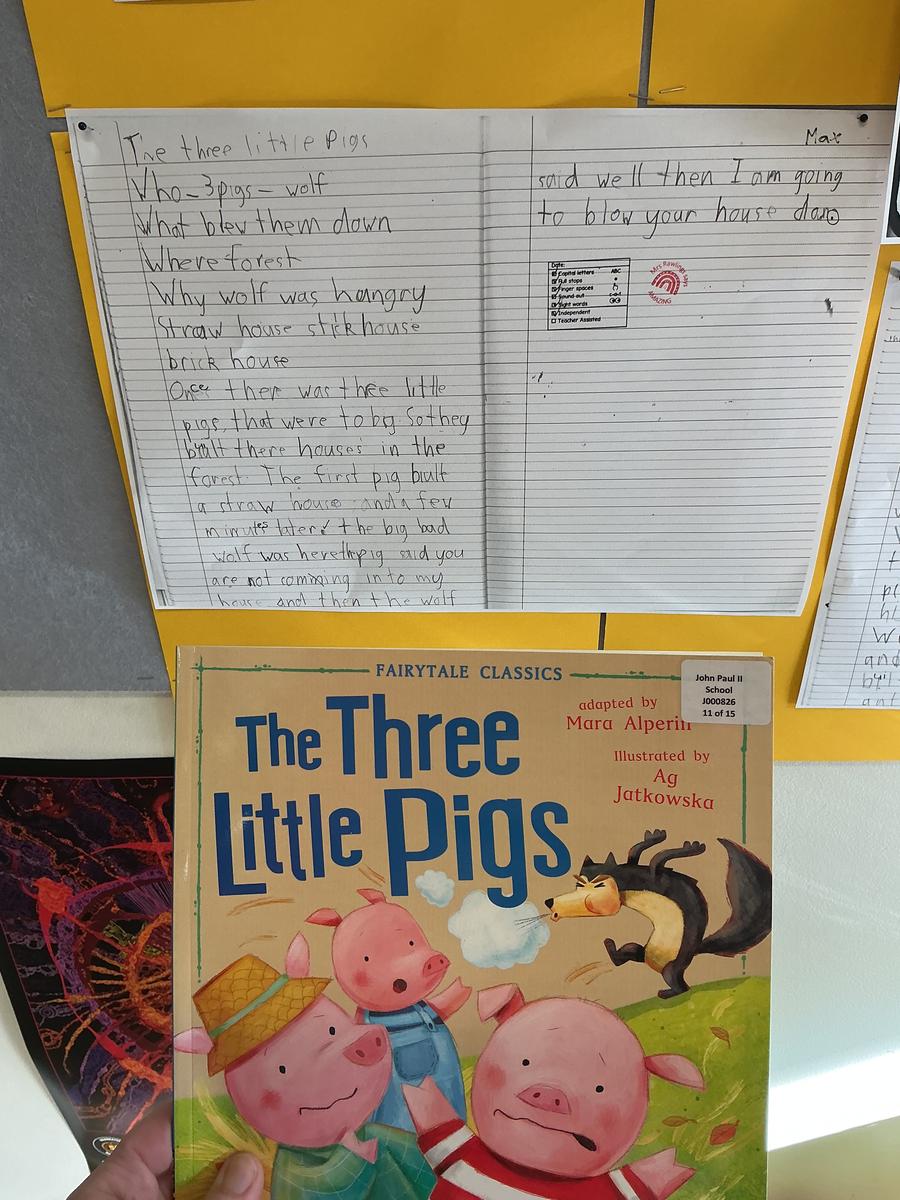 The three little Pigs
Who - 3 pigs - wolf
What blew them down
Where forest
Why wolf was hangry
Straw house stick house
brick house
Once there was thee little
pigs, that were to big So they
built there houses in the
forest. The first pig biult
a straw house and a few
minutes later the big bad
wolf was here the pig said you
are not comming in to my
house and then the wolf
Max
said well then I am going
to blow your house down
Date:
Capital letters ABC
Full stops
Finger spaces
Sound out
Sight words
Independent
Teacher Assisted
Mrs Rawlings says
AMAZING
FAIRYTALE CLASSICS
The Three
Little Pigs
adapted by
Mara Alperin
Illustrated by
Ag
Jatkowska
John Paul II
School
J000826
11 of 15